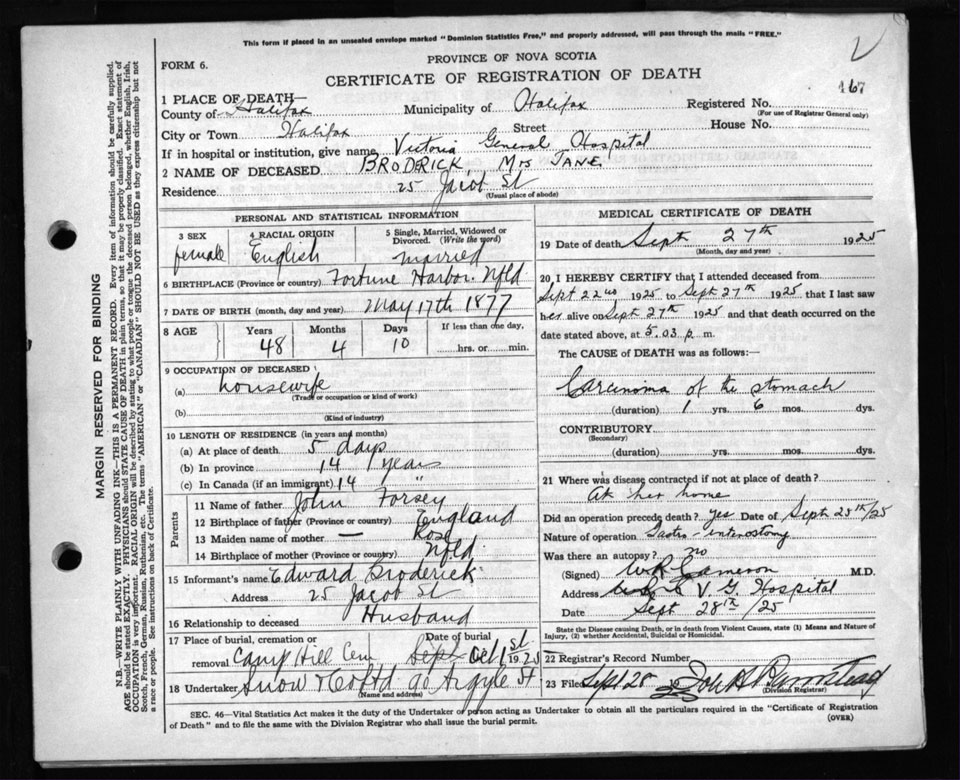 This form if placed in an unsealed envelope marked "Dominion Statistics Free," and properly addressed, will pass through the mails "FREE."
FORM 6.
PROVINCE OF NOVA SCOTIA
CERTIFICATE OF REGISTRATION OF DEATH
167
1 PLACE OF DEATH—
County of Halifax Municipality of Halifax Registered No.
(For use of Registrar General only)
City or Town Halifax Street House No.
If in hospital or institution, give name Victoria General Hospital
2 NAME OF DECEASED BRODERICK, Mrs JANE
Residence 25 Jacob St
(Usual place of abode)
PERSONAL AND STATISTICAL INFORMATION
3 SEX 4 RACIAL ORIGIN 5 Single, Married, Widowed or Divorced. (Write the word)
female English married
6 BIRTHPLACE (Province or country) Fortune Harbor. Nfld
7 DATE OF BIRTH (month, day and year) May 17th 1877
8 AGE Years Months Days If less than one day,
48 4 10 hrs. or min.
9 OCCUPATION OF DECEASED
(a) housewife
(Trade or occupation or kind of work)
(b)
(Kind of industry)
10 LENGTH OF RESIDENCE (in years and months)
(a) At place of death 5 days
(b) In province 14 years
(c) In Canada (if an immigrant) 14 "
Parents
11 Name of father John Forsey
12 Birthplace of father (Province or country) England
13 Maiden name of mother — Rose
14 Birthplace of mother (Province or country) Nfld
15 Informant's name Edward Broderick
Address 25 Jacob St
16 Relationship to deceased Husband
17 Place of burial, cremation or removal Camp Hill Cem Date of burial Sept Oct 1st 1925
18 Undertaker Snow & Co Ltd 90 Argyle St
(Name and address)
MEDICAL CERTIFICATE OF DEATH
19 Date of death Sept 27th 1925
(Month, day and year)
20 I HEREBY CERTIFY that I attended deceased from
Sept 22nd 1925 to Sept 27th 1925 that I last saw
her alive on Sept 27th 1925 and that death occurred on the
date stated above, at 5.03 p. m.
The CAUSE of DEATH was as follows:
Carcinoma of the stomach
(duration) 1 yrs. 6 mos. dys.
CONTRIBUTORY
(Secondary)
(duration) yrs. mos. dys.
21 Where was disease contracted if not at place of death?
At her home
Did an operation precede death? yes Date of Sept 25th/25
Nature of operation Gastro-enterostomy
Was there an autopsy? no
(Signed) W R Cameron M.D.
Address V. G. Hospital
Date Sept 28th/25
State the Disease causing Death, or in death from Violent Causes, state (1) Means and Nature of
Injury, (2) whether Accidental, Suicidal or Homicidal.
22 Registrar's Record Number
23 Filed Sept 28 19
(Division Registrar)
SEC. 46—Vital Statistics Act makes it the duty of the Undertaker or person acting as Undertaker to obtain all the particulars required in the "Certificate of Registration
of Death" and to file the same with the Division Registrar who shall issue the burial permit.
(OVER)
MARGIN RESERVED FOR BINDING
N.B.—WRITE PLAINLY WITH UNFADING INK—THIS IS A PERMANENT RECORD. Every item of information should be carefully supplied.
AGE should be stated EXACTLY. PHYSICIANS should STATE CAUSE OF DEATH in plain terms, so that it may be properly classified. Exact statement of
OCCUPATION is very important. RACIAL ORIGIN will be described by stating to what people or tongue the deceased person belonged, whether English, Irish,
Scotch, French, German, Russian, Ruthenian, etc. The terms "AMERICAN" or "CANADIAN" SHOULD NOT BE USED as they express citizenship but not
a race or people. See instructions on back of Certificate.